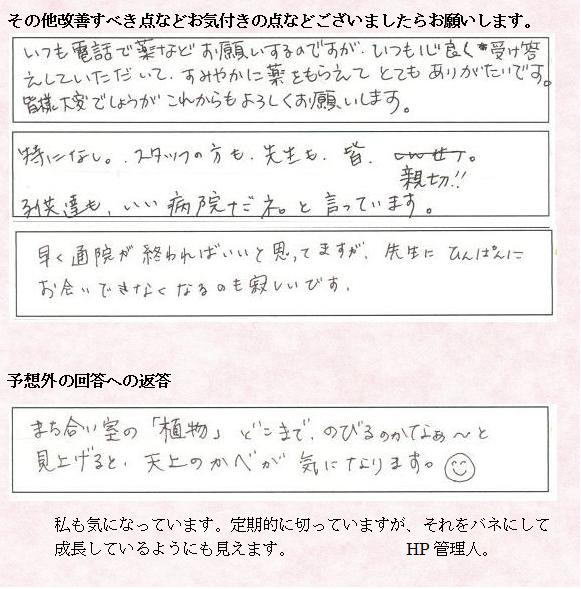 その他改善すべき点などお気付きの点などございましたらお願いします。
いつも電話で薬など お願いするのですが、いつも心良く 受け答
えしていただいて、すみやかに薬をもらえて とても ありがたいです。
皆様大変でしょうが これからもよろしくお願いします。
特になし。スタッフの方も、先生も、皆、
親切!!
子供達も、いい 病院だネ。と言っています。
早く通院が終わればいいと思ってますが、先生に ひんぱんに
お会いできなくなるのも寂しいです。
予想外の回答への返答
まち合い室の「植物」どこまで、のびるのかなぁ〜と
見上げると、天上のかべが 気になります。
私も気になっています。定期的に切っていますが、それをバネにして
成長しているようにも見えます。 HP管理人。